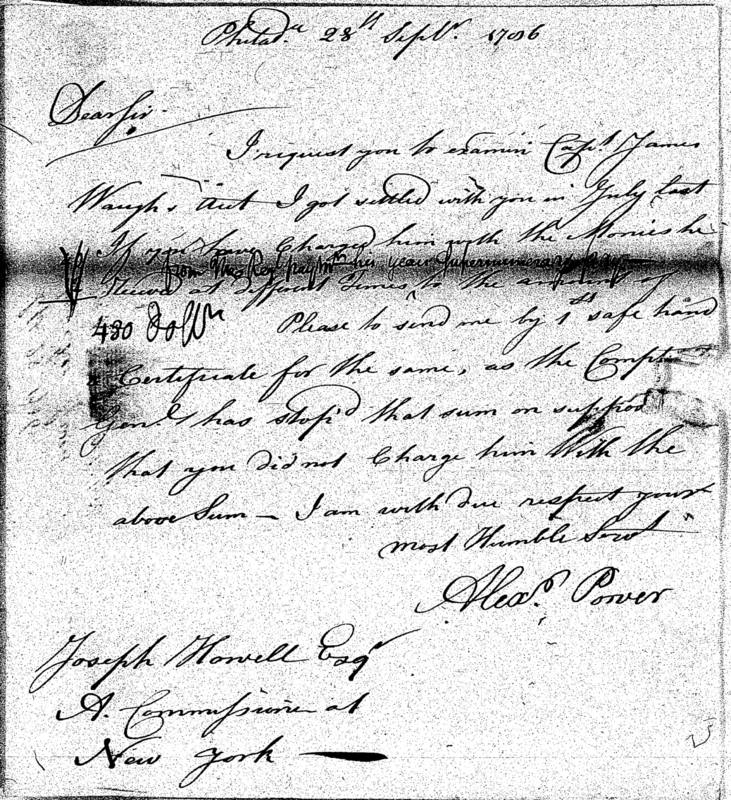 Philad.ᵃ 28ᵗʰ Sepʳ. 1786
Dear Sir
I request you to examin Capᵗ James
Waugh's Acct I got settled with you in July last
If you have Charged him with the Monies he
from the Regᵗ paymʳ his year Supernumerary pay
at different times to the amount of
480 Dollʳˢ Please to send me by 1ˢᵗ safe hand
Certificate for the same, as the Compᵗ
Genˡ has stop'd that sum on
that you did not Charge him With the
above Sum — I am with due respect your
most Humble Servᵗ
Alexʳ. Power
Joseph Howell Esqʳ
A. Commissioner at
New York